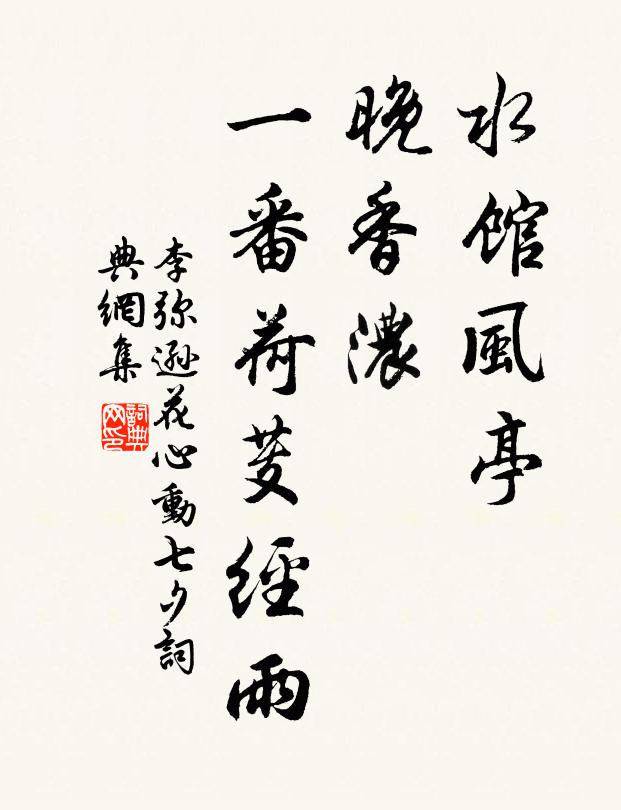 水館風亭
晚香濃
一番荷芰經雨
李弥遜花心動七夕詞
典網集
詞典
网印